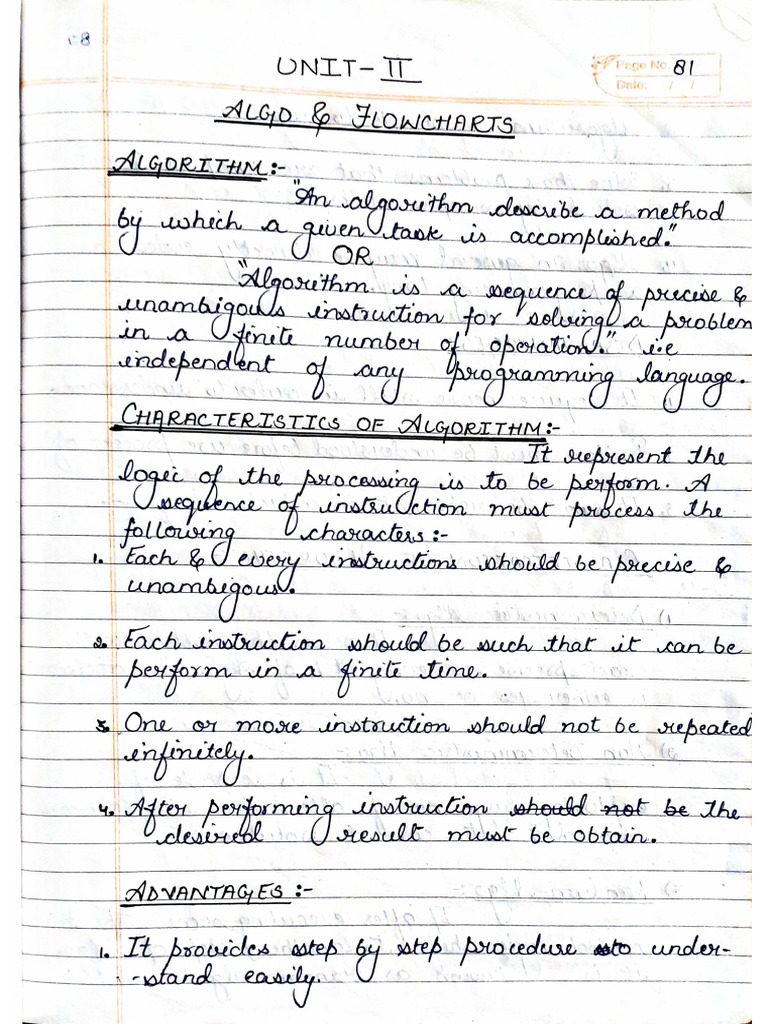 UNIT-II
Page No. 81
Date: / /
ALGO & FLOWCHARTS
ALGORITHM:-
"An algorithm describe a method
by which a given task is accomplished."
OR
"Algorithm is a sequence of precise &
unambigous instruction for solving a problem
in a finite number of operation." i.e
independent of any programming language.
CHARACTERISTICS OF ALGORITHM:-
It represent the
logic of the processing is to be perform. A
sequence of instruction must process the
following characters:-
1. Each & every instructions should be precise &
unambigous.
2. Each instruction should be such that it can be
perform in a finite time.
3. One or more instruction should not be repeated
infinitely.
4. After performing instruction should not be the
desired result must be obtain.
ADVANTAGES:-
1. It provides step by step procedure to under-
-stand easily.